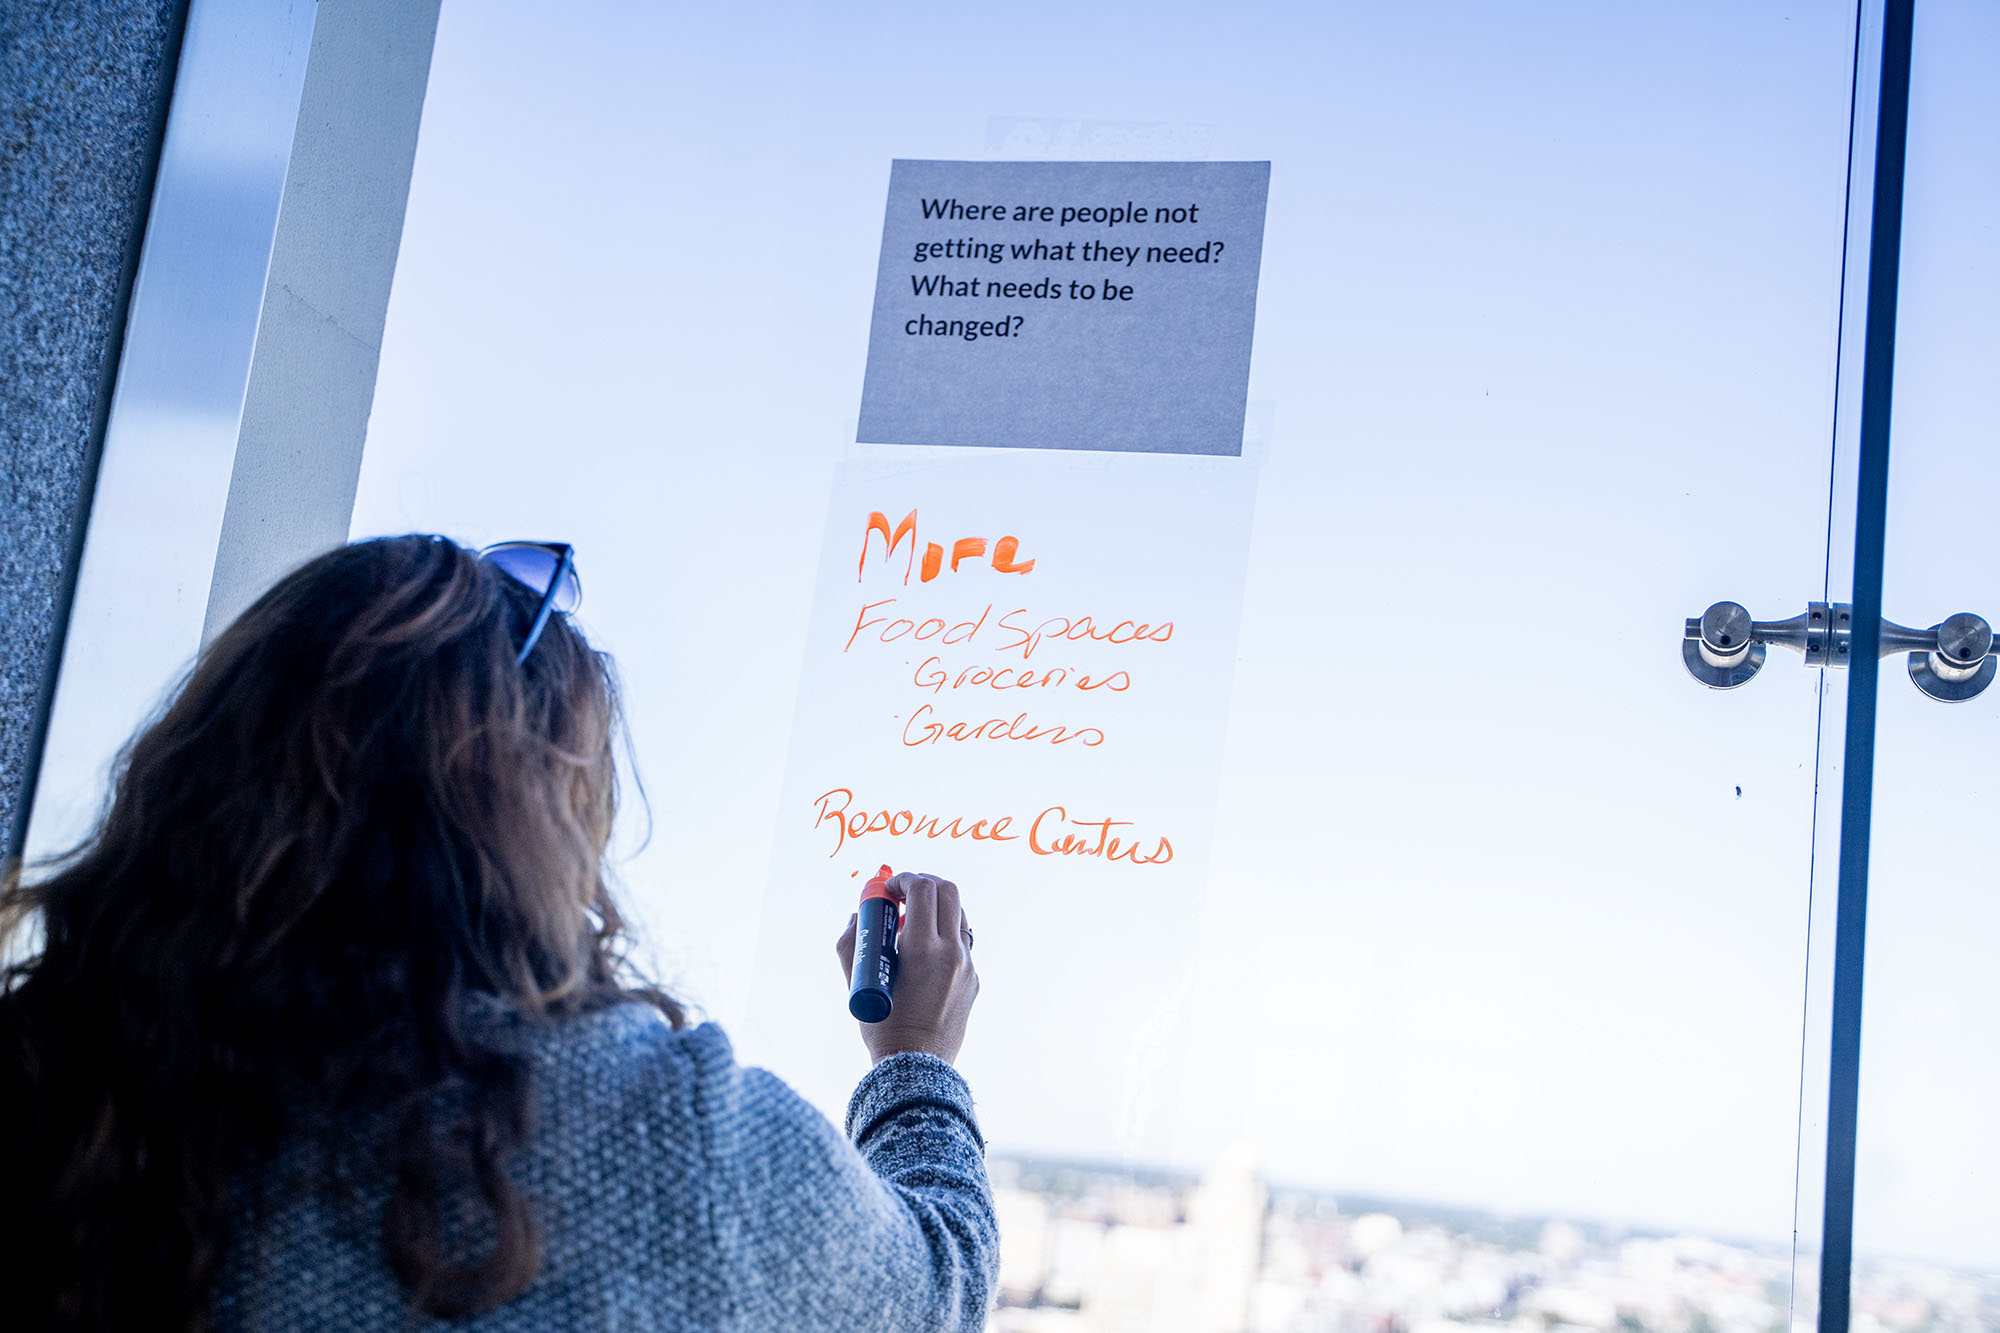 Where are people not
getting what they need?
What needs to be
changed?
More
Food Spaces
· Groceries
· Gardens
Resource Centers
·
Chalkola